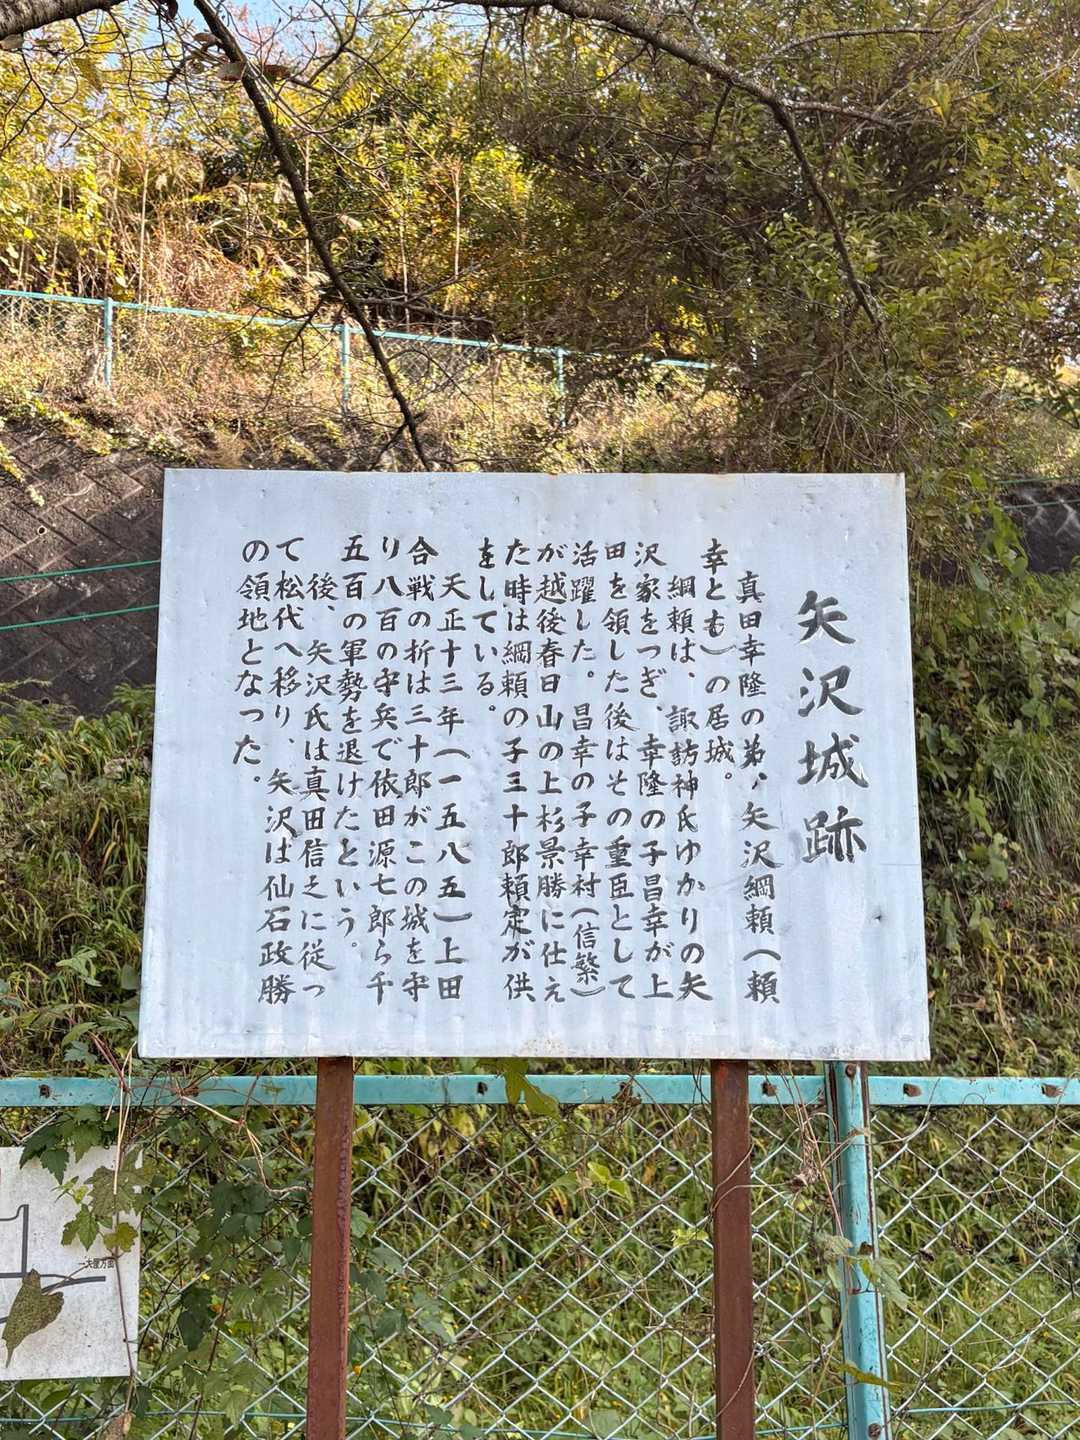 矢沢城跡
真田幸隆の弟、矢沢綱頼（頼
幸とも）の居城。
綱頼は、諏訪神氏ゆかりの矢
沢家をつぎ、幸隆の子昌幸が上
田を領した後はその重臣として
活躍した。昌幸の子幸村（信繁）
が越後春日山の上杉景勝に仕え
た時は綱頼の子三十郎頼定が供
をしている。
天正十三年（一五八五）上田
合戦の折は三十郎がこの城を守
り八百の守兵で依田源七郎ら千
五百の軍勢を退けたという。
後、矢沢氏は真田信之に従っ
て松代へ移り、矢沢は仙石政勝
の領地となった。